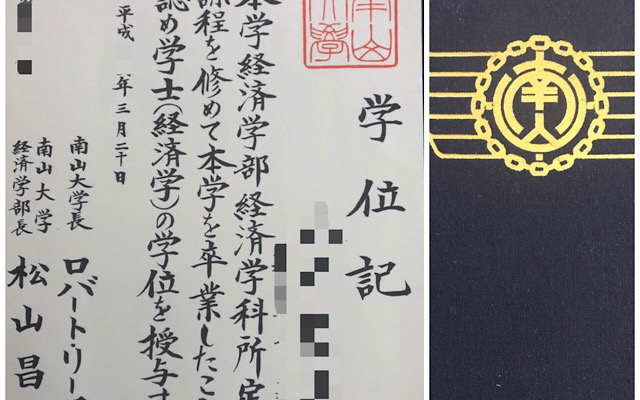 学位記
本学経済学部経済学科所定
課程を修めて本学を卒業したこ
認め学士(経済学)の学位を授与す
平成 年三月二十日
南山大学長 ロバート・リー
南山大学
経済学部長 松山昌